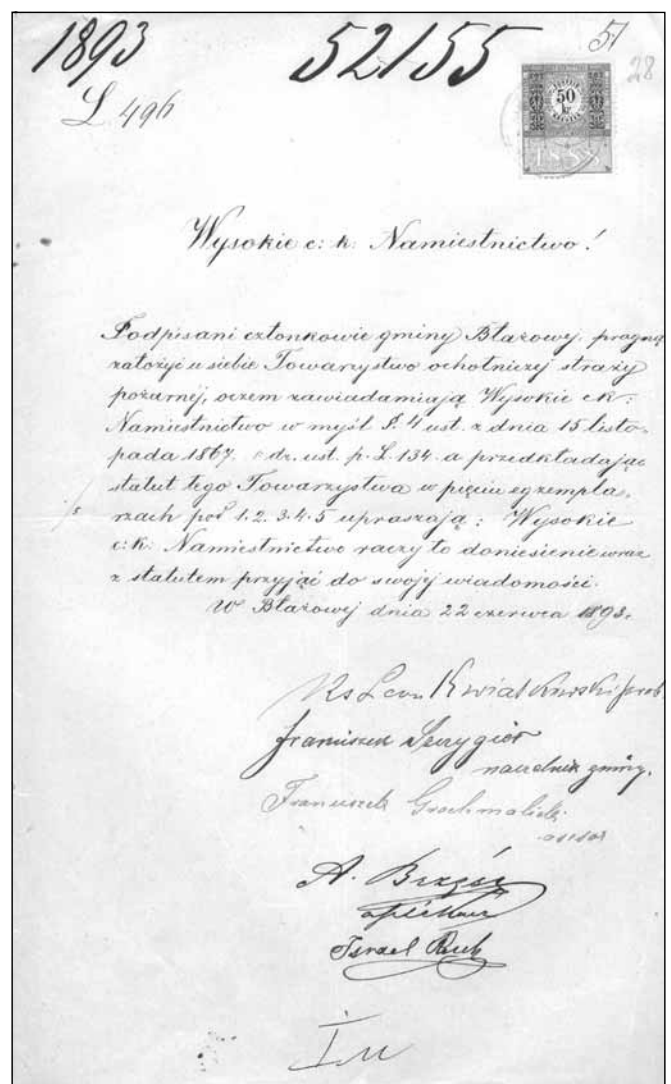 1893 52155 51
28
L 496
50
kr
1888
Wysokie c: k: Namiestnictwo!
Podpisani członkowie gminy Błażowy, pragną
założyć u siebie Towarzystwo ochotniczej straży
pożarnej, oczem zawiadamiają Wysokie c k:
Namiestnictwo w myśl §. 4 ust. z dnia 15 listo-
pada 1867. dz. ust. p. L. 134. a przedkładając
statut tego Towarzystwa w pięciu egzempla-
rzach pod 1. 2. 3. 4. 5 upraszają: Wysokie
c: k: Namiestnictwo raczy to doniesienie wraz
z statutem przyjąć do swojej wiadomości.
W Błażowej dnia 22 czerwca 1893.
Ks Leon Kwiatkowski prob
Franciszek
naczelnik gminy.
Franciszek Grochmalicki
asesor
A. Brzęś
aptekarz
Israel